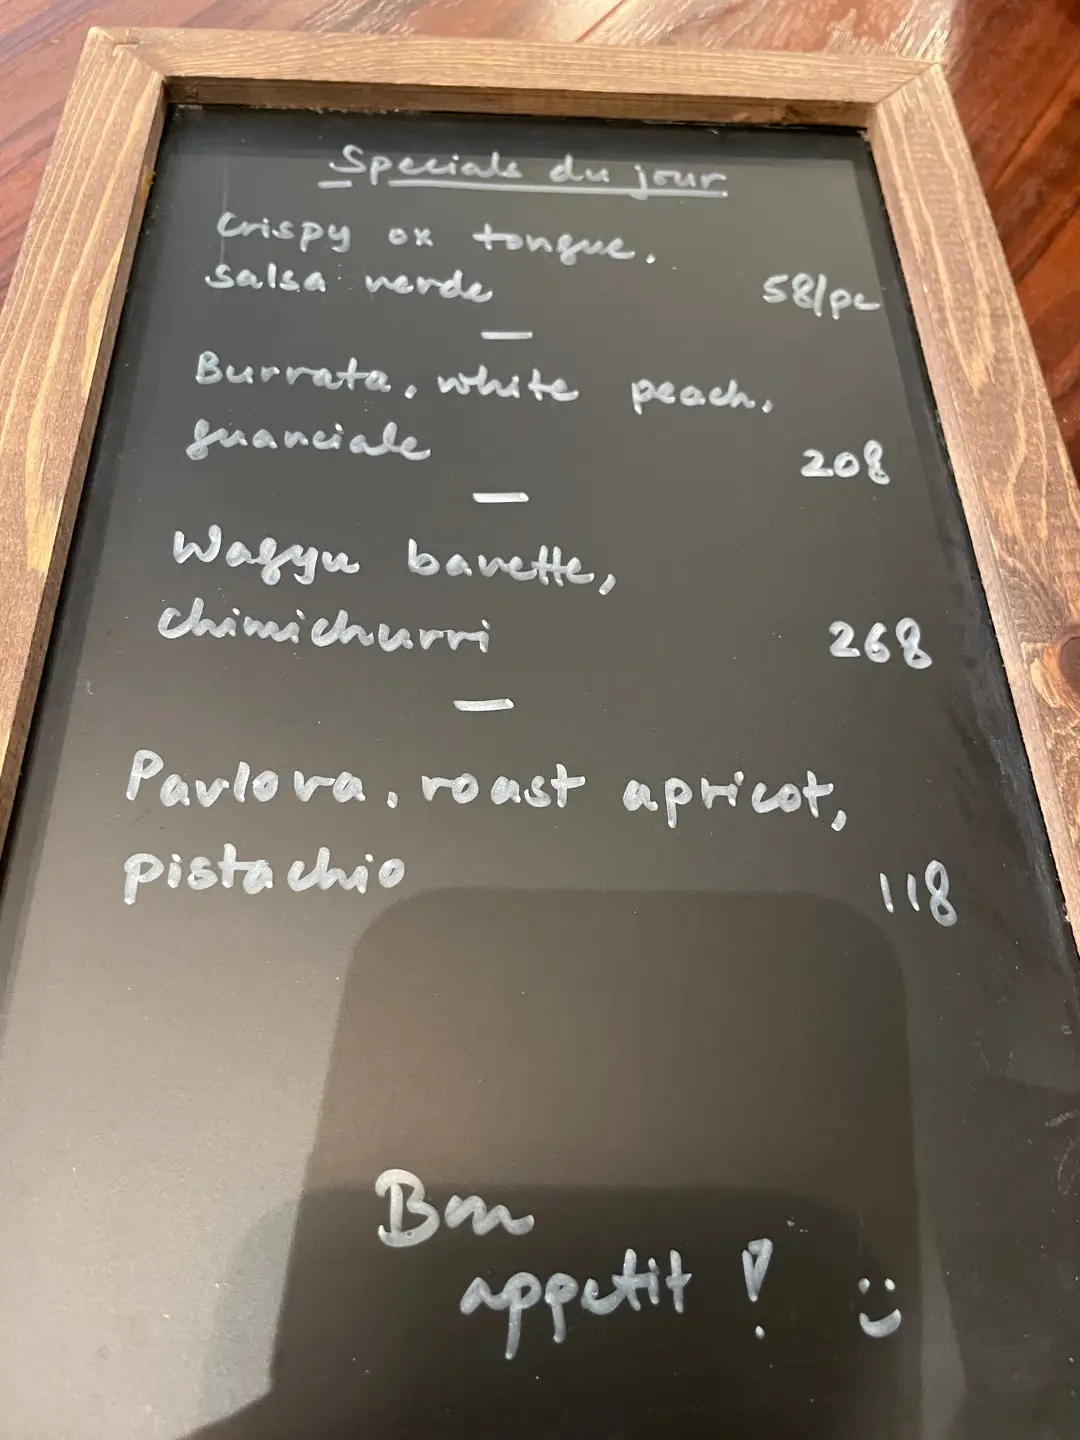 Specials du jour
Crispy ox tongue,
salsa verde 58/pc
Burrata, white peach,
guanciale 208
Wagyu bavette,
chimichurri 268
Pavlova, roast apricot,
pistachio 118
Bon
appetit ! :)